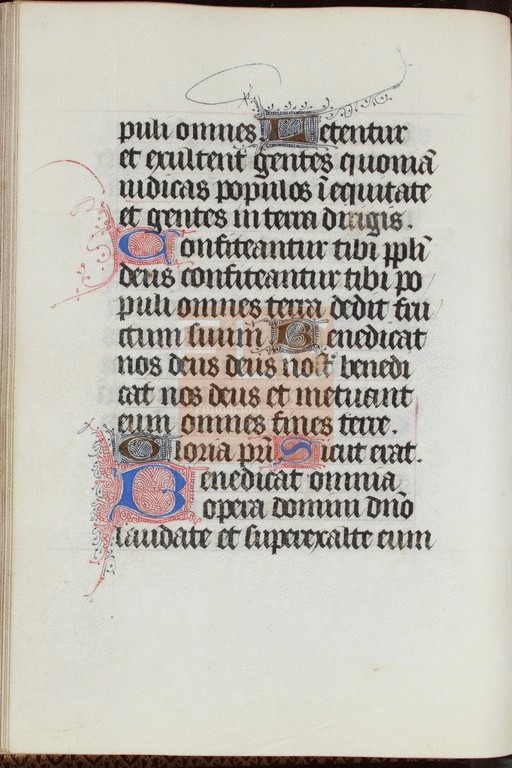 puli omnes. Letentur
et exultent gentes quoniā
iudicas populos ī equitate
et gentes in terra dirigis.
Confiteantur tibi ppli
deus confiteantur tibi po
puli omnes terra dedit fru
ctum suum Benedicat
nos deus deus nostr benedi
cat nos deus et metuant
eum omnes fines terre.
Gloria pri Sicut erat.
Benedicat omnia
opera domini dn̄o
laudate et superexalte eum